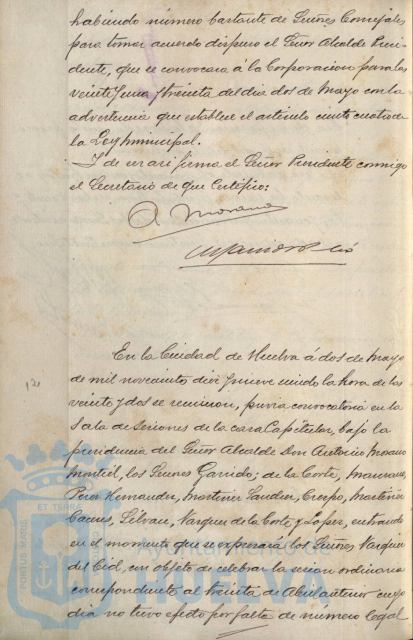 habiendo número bastante de Señores Concejales
para tomar acuerdo dispuso el Señor Alcalde Presi-
dente, que se convocara á la Corporacion para las
veinte y una y treinta del dia dos de Mayo con la
advertencia que establece el articulo ciento cuatro de
la Ley municipal.
Y de ser asi firma el Señor Presidente conmigo
el Secretario de que Certifico:
A Moreno
En la Ciudad de Huelva á dos de Mayo
de mil novecientos diez y nueve siendo la hora de las
veinte y dos se reunieron, previa convocatoria en la
Sala de Sesiones de la casa Capitular, bajo la
presidencia del Señor Alcalde Don Antonio Moreno
Montiel, los Señores Garrido; de la Corte,
Perez Hernandez, Martinez Sanchez, Crespo, Martinez
Vazquez de la Corte y Lopez, entrando
en el momento que se expresará los Señores Vazquez
del Cid, con objeto de celebrar la sesion ordinaria
correspondiente al treinta de Abril anterior cuyo
dia no tuvo efecto por falta de número legal
PORTUS MARIS
ET TERRE
Ayuntamiento de
HUELVA